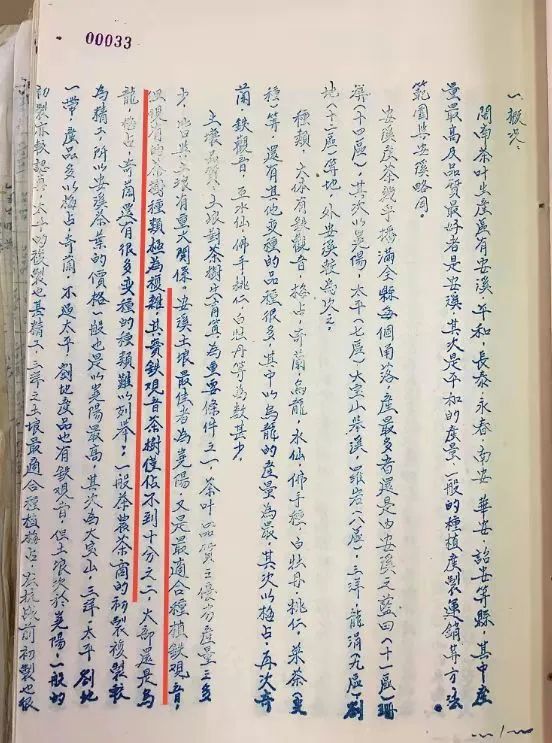 00033
一、概况:
閩南茶叶生產區有安溪、平和、長泰、永春、南安、華安、詔安等縣，其中產
量最高及品質最好者是安溪，其次是平和的產量，一般的種植度製運銷等方法
範圍與安溪略同。
安溪產茶幾乎楊滿全縣每個角落，產最多者還是由安溪之藍田（十一區）珊
屏（十四區），其次以尧陽，太平（七區）大室山芦溪，羅岩（八區），三洋，龍涓（九區）劉
地（十二區）等地，外安溪較為次之。
種類，大体有鉄觀音，梅占，奇蘭烏龍，水仙，佛手種，白牡丹，桃仁，菜茶（变
種）等，還有其他变種的品種很多，其中以烏龍的產量為最，其次以梅占，再次奇
蘭，鉄觀音，至水仙佛手桃仁白牡丹等為数甚少。
土壤品質，土壤對茶樹生育質為重要條件之一，茶叶品質之優劣產量之多
少，皆與土壤有重大関係，安溪土壤最佳者為尧陽，又是最適合種植鉄观音，
但現有的茶樹種類極為複雜，其實鉄观音茶樹僅佔不到十分之二，大部還是烏
龍，梅占，奇蘭還有很多变種的種類難以列举。一般茶農茶商的初製複製較
為精工，所以安溪茶葉的價格一般也是以尧陽最高，其次為大寅山，三洋，太平 劉地
一帶，產品多以梅占，奇蘭，不過太平，劉地產品也有鉄观音，但土壤次於尧陽一般的
初製亦較認真，太平的複製也甚精工，三洋之土壤最適合種植梅占，在抗战前初製也很
1